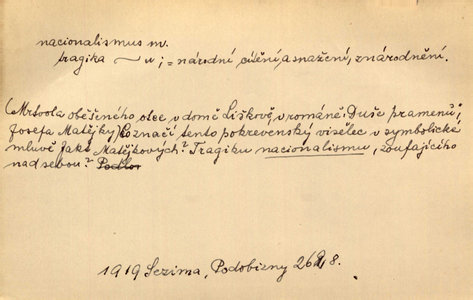 nacionalismus m.
tragika ~u; = národní cítění, a snažení, znárodnění.
(Mrtvola oběšeného otce v domě Liškově, v románě: Duše pramenů;
Josefa Matějky) Co značí tento pokrevenský viselec v symbolické
mluvě Jak Matějkových? Tragiku nacionalismu, zoufajícího
nad sebou?
1919 Sezima, Podobizny 8.